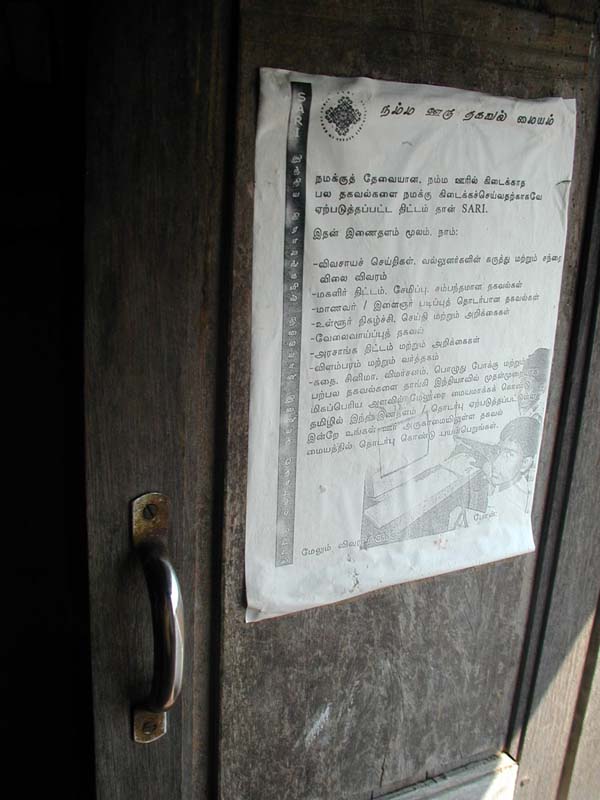 நம்ம ஊரு தகவல் மையம்
நமக்குத் தேவையான, நம்ம ஊரில் கிடைக்காத
பல தகவல்களை நமக்கு கிடைக்கச்செய்வதற்காகவே
ஏற்படுத்தப்பட்ட திட்டம் தான் SARI.
இதன் இணைதளம் மூலம், நாம்:
-விவசாயச் செய்திகள், வல்லுனர்களின் கருத்து மற்றும் சந்தை
விலை விவரம்
-மகளிர் திட்டம், சேமிப்பு, சம்பந்தமான தகவல்கள்
-மாணவர் / இளைஞர் படிப்புத் தொடர்பான தகவல்கள்
-உள்ளூர் நிகழ்ச்சி, செய்தி மற்றும் அறிக்கைகள்
-வேலைவாய்ப்புத் தகவல்
-அரசாங்க திட்டம் மற்றும் அறிக்கைகள்
-விளம்பரம் மற்றும் வர்த்தகம்
-கதை, சினிமா, விமர்சனம், பொழுது போக்கு மற்றும்
பற்பல தகவல்களை தாங்கி இந்தியாவில் முதன்முறையாக
மிகப்பெரிய அளவில் மேலூரை மையமாக்கக் கொண்டு
தமிழில் இந்த இணைதளம் / தொடர்பு ஏற்படுத்தப்பட்டுள்ளது.
இன்றே உங்கள் ஊர் அருகாமையிலுள்ள தகவல்
மையத்தில் தொடர்பு கொண்டு பயன்பெறுங்கள்.
மேலும், போன்:
SARI